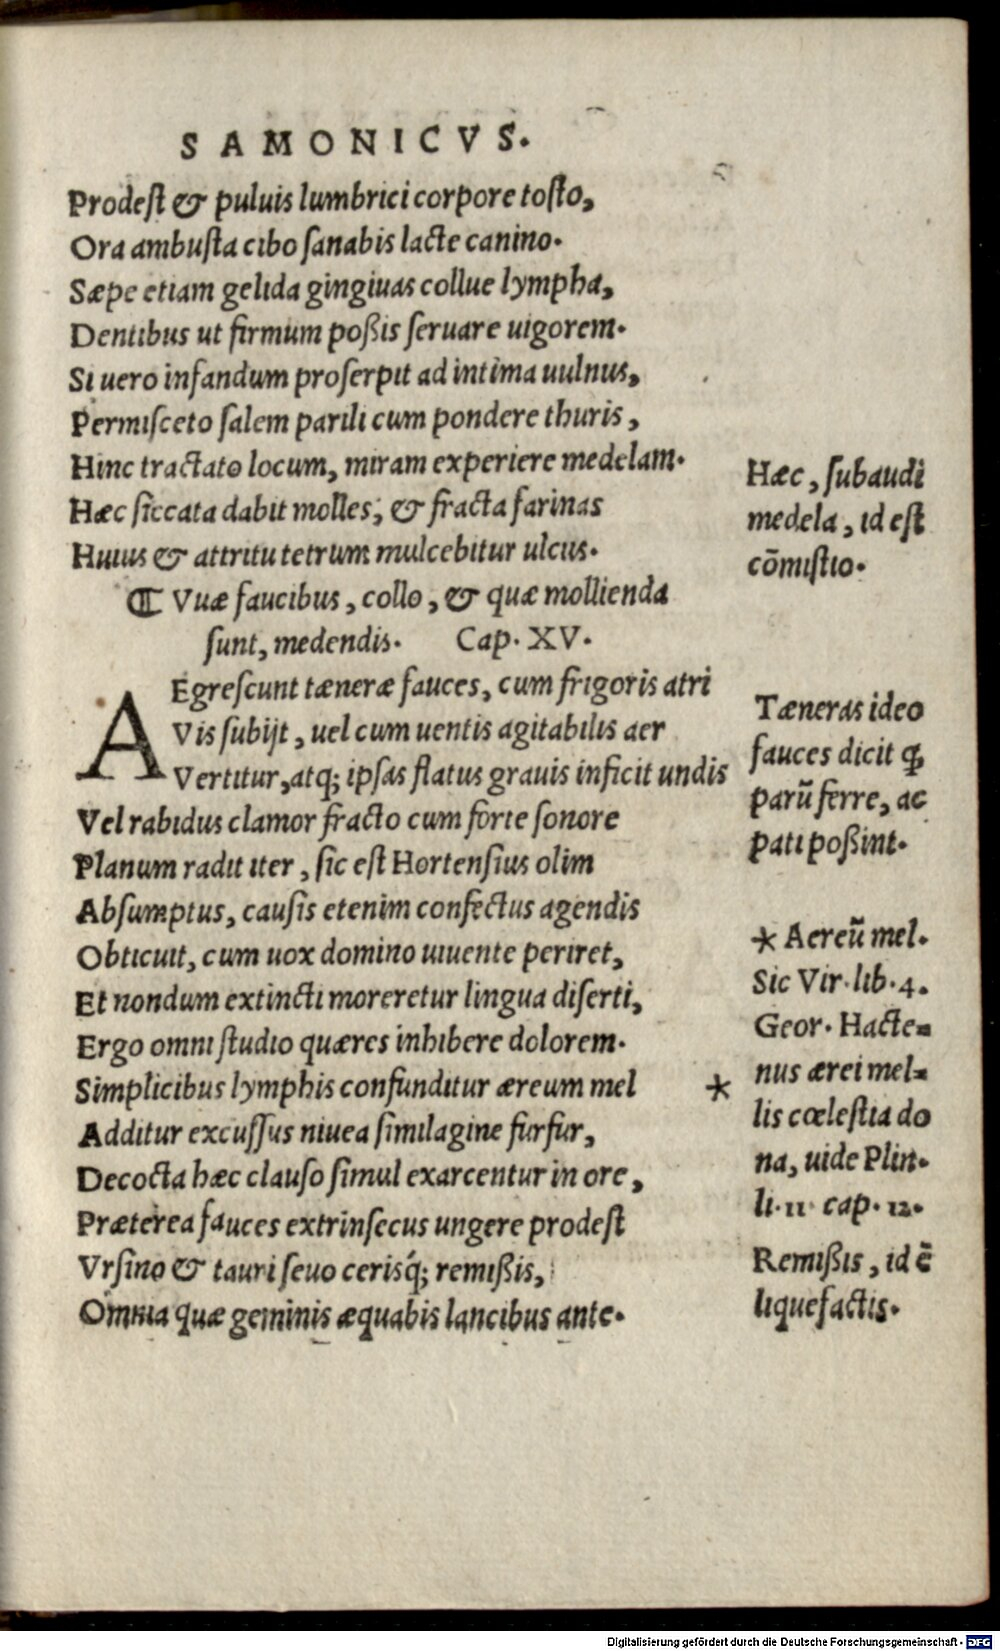 SAMONICVS.
Prodeſt & puluis lumbrici corpore toſto,
Ora ambuſta cibo ſanabis lacte canino.
Sæpe etiam gelida gingiuas collue lympha,
Dentibus ut firmum poßis ſeruare uigorem.
Si uero infandum proſerpit ad intima uulnus,
Permiſceto ſalem parili cum pondere thuris,
Hinc tractato locum, miram experiere medelam.
Hæc ſiccata dabit molles; & fracta farinas
Huius & attritu tetrum mulcebitur ulcus.
Hæc, ſubaudi
medela, id eſt
cōmiſtio.
¶ Vuæ faucibus, collo, & quæ mollienda
ſunt, medendis. Cap. XV.
AEgreſcunt tæneræ fauces, cum frigoris atri
Vis ſubijt, uel cum uentis agitabilis aer
Vertitur, atq; ipſas flatus grauis inficit undis
Vel rabidus clamor fracto cum forte ſonore
Planum radit iter, ſic eſt Hortenſius olim
Abſumptus, cauſis etenim confectus agendis
Obticuit, cum uox domino uiuente periret,
Et nondum extincti moreretur lingua diſerti,
Ergo omni ſtudio quæres inhibere dolorem.
Simplicibus lymphis confunditur æreum mel *
Additur excuſſus niuea ſimilagine furfur,
Decocta hæc clauſo ſimul exarcentur in ore,
Præterea fauces extrinſecus ungere prodeſt
Vrſino & tauri ſeuo ceriſq́; remißis,
Omnia quæ geminis æquabis lancibus ante.
Tæneras ideo
fauces dicit ꝙ
parū ferre, ac
pati poßint.
* Aereū mel.
Sic Vir. lib. 4.
Geor. Hacte=
nus ærei mel=
lis cœleſtia do
na, uide Plin.
li. 11 cap. 12.
Remißis, id ē
liquefactis.
Digitalisierung gefördert durch die Deutsche Forschungsgemeinschaft - DFG